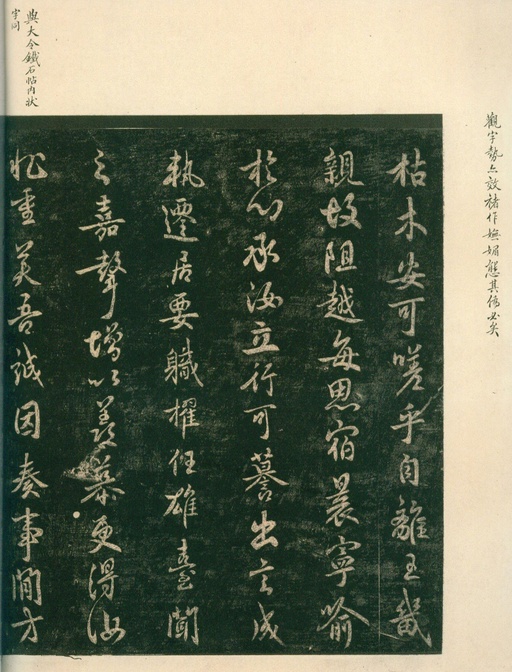 觀字勢亦效褚作嫵媚態其偽必矣
枯木安可嗟乎自離王畿
親故阻越每思宿晨寧喻
於心承汝立行可謩出言成
執遷居要職擢任雄臺聞
之嘉聲增以羨慕更得汝
狀重美吾誠因奏事閒才
與大令鐵石帖內狀
字同